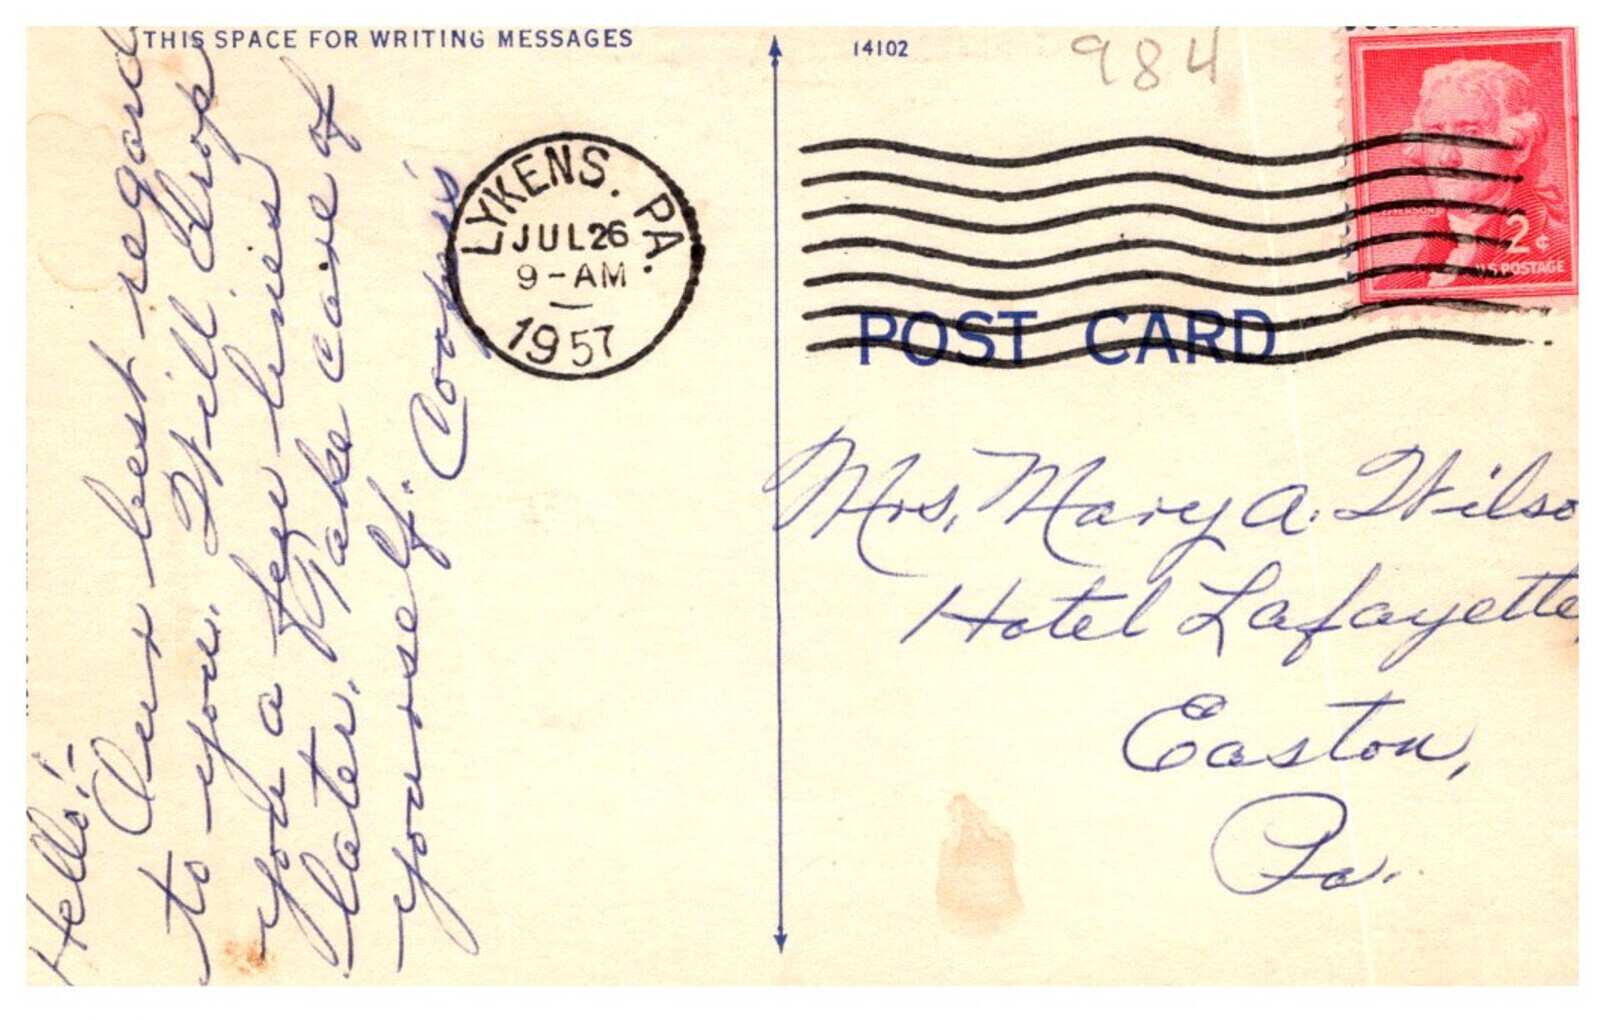 THIS SPACE FOR WRITING MESSAGES
14102
984
LYKENS, PA.
JUL 26
9-AM
1957
JEFFERSON
2¢
U.S. POSTAGE
POST CARD
Hello:-
Our best regard
to you. Will drop
you a few lines
later. Take care of
yourself.
Mrs. Mary A. Wilso
Hotel Lafayette,
Easton,
Pa.